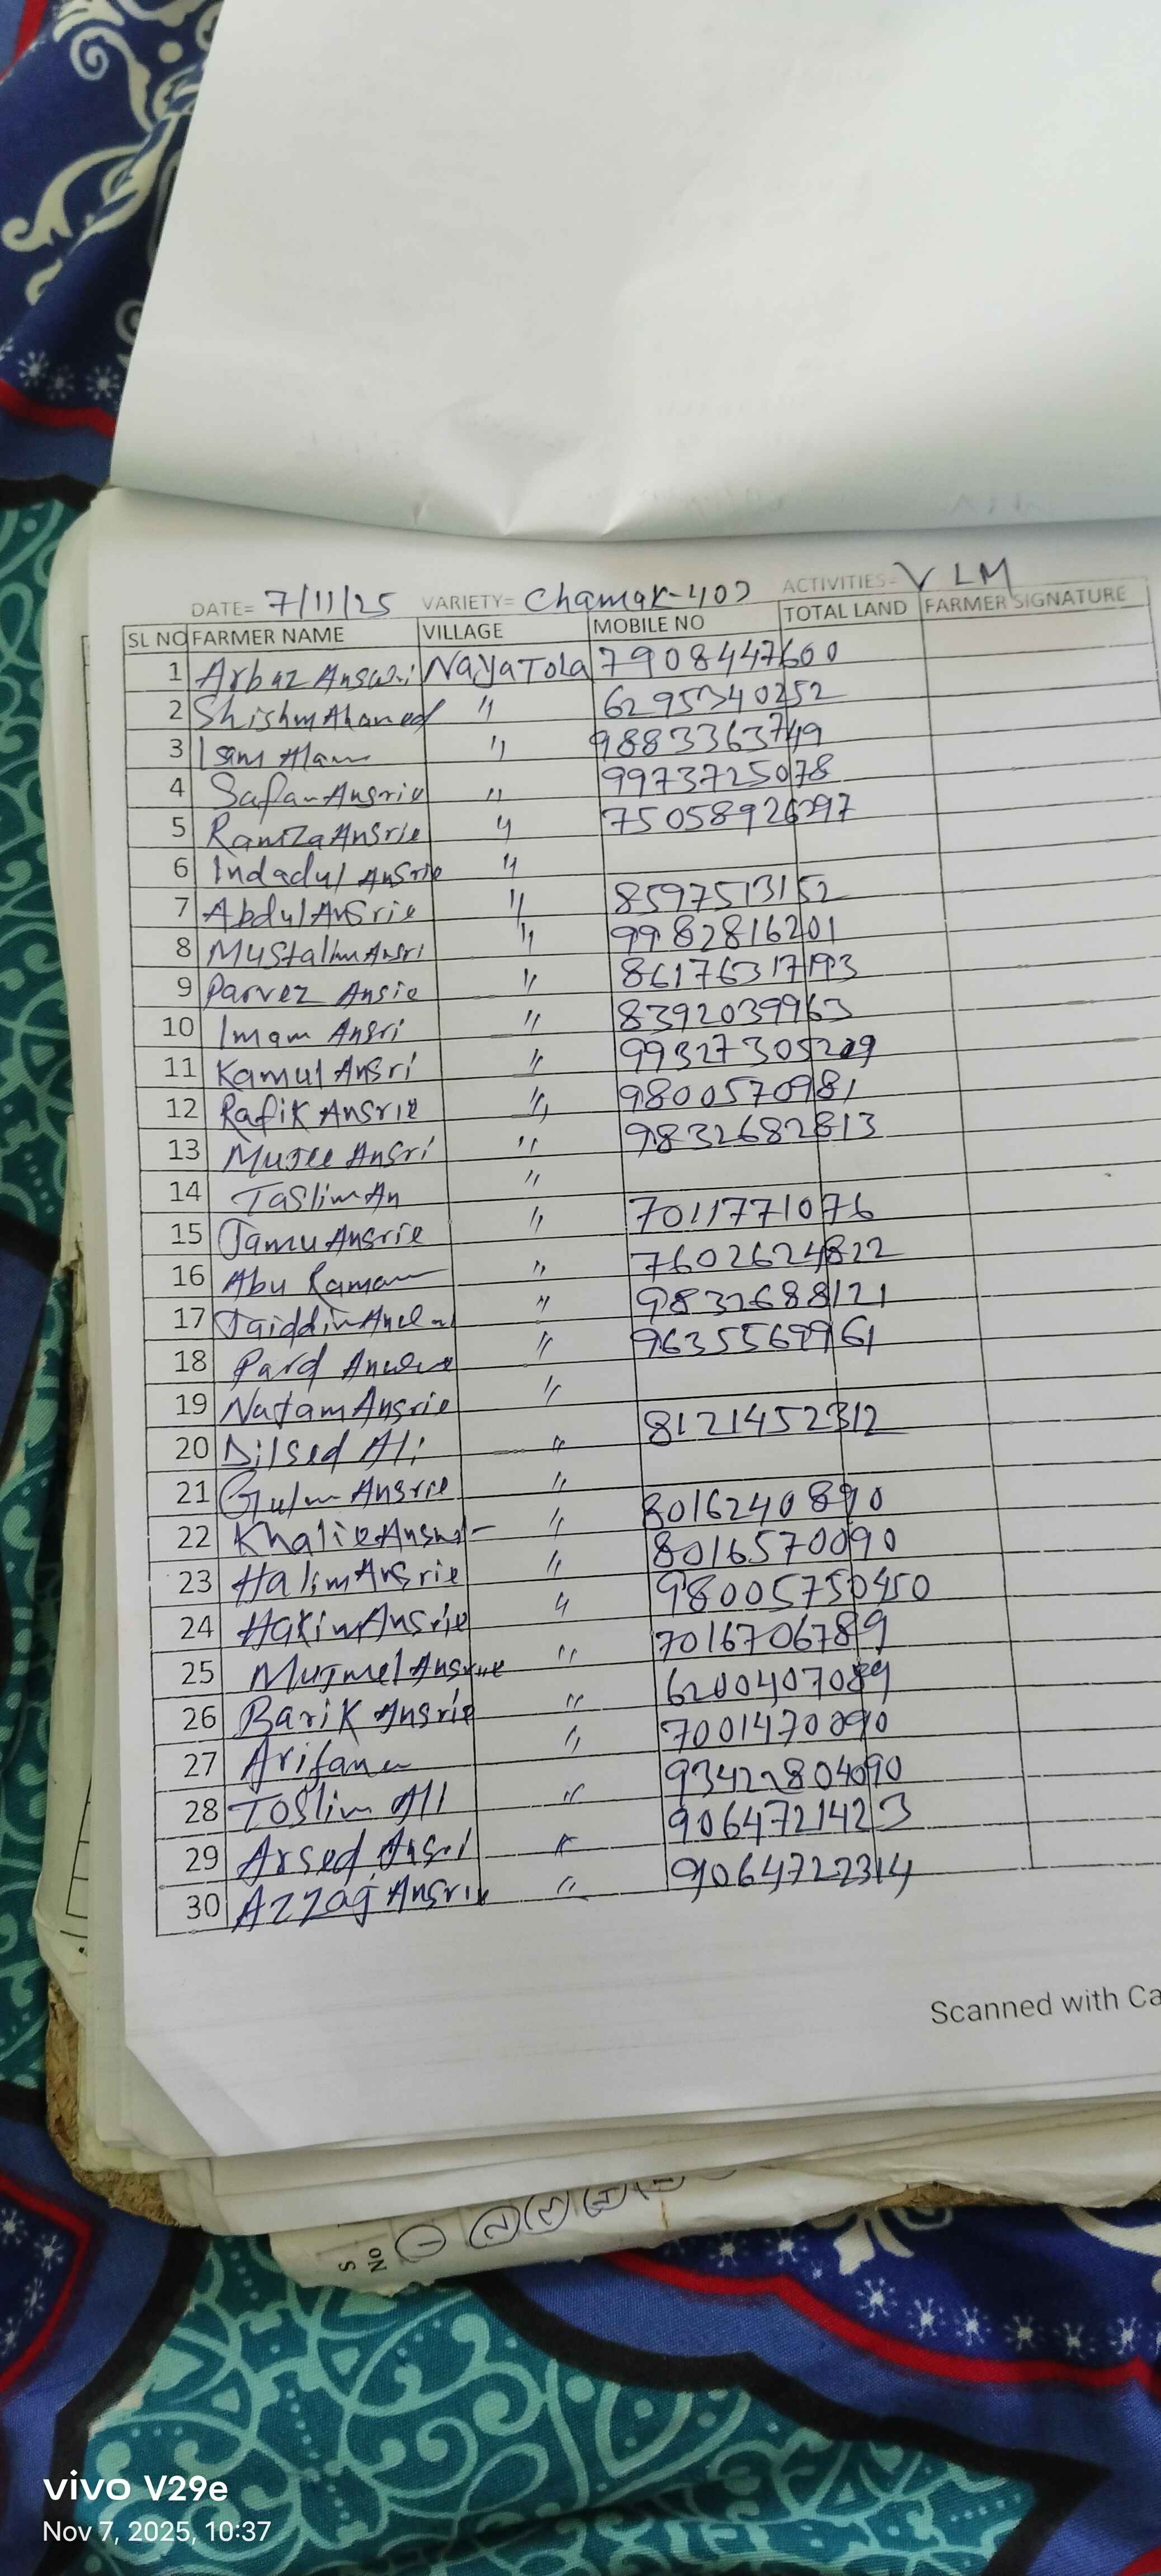 DATE= 7/11/25 VARIETY= Chamak-402 ACTIVITIES= VLM
SL NO FARMER NAME VILLAGE MOBILE NO TOTAL LAND FARMER SIGNATURE
1 Arbaz Answri NayaTola 7908447600
2 Shishm Ahamed " 6295340252
3 Isam Alam " 9883363749
4 Safan Ansrie " 9973725078
5 Ramza Ansrie " 75058926297
6 Indadul Ansrie "
7 Abdul Ansrie " 8597513152
8 Mustalim Ansri " 9982816201
9 Parvez Ansie " 86176317193
10 Imam Ansri " 8392039963
11 Kamul Ansri " 99327305209
12 Rafik Ansrie " 9800570981
13 Mujee Ansri " 9832682813
14 Taslim An "
15 Jamu Ansrie " 7011771076
16 Abu Raman " 7602624822
17 Jaiddin " 9832688121
18 Pard " 9635569961
19 Natam Ansrie "
20 Dilsed Ali " 8121452312
21 Gulm Ansrie "
22 Khalie " 8016240890
23 Halim Ansrie " 8016570090
24 Hakim Ansrie " 98005750450
25 Mujmel Ansrie " 7016706789
26 Barik Ansrie " 6200407089
27 Arifan " 7001470090
28 Toslim All " 93422804090
29 Arsed Ansri " 9064721423
30 Azzag Ansrie " 9064722314
Scanned with Ca
S
NO
1
vivo V29e
Nov 7, 2025, 10:37